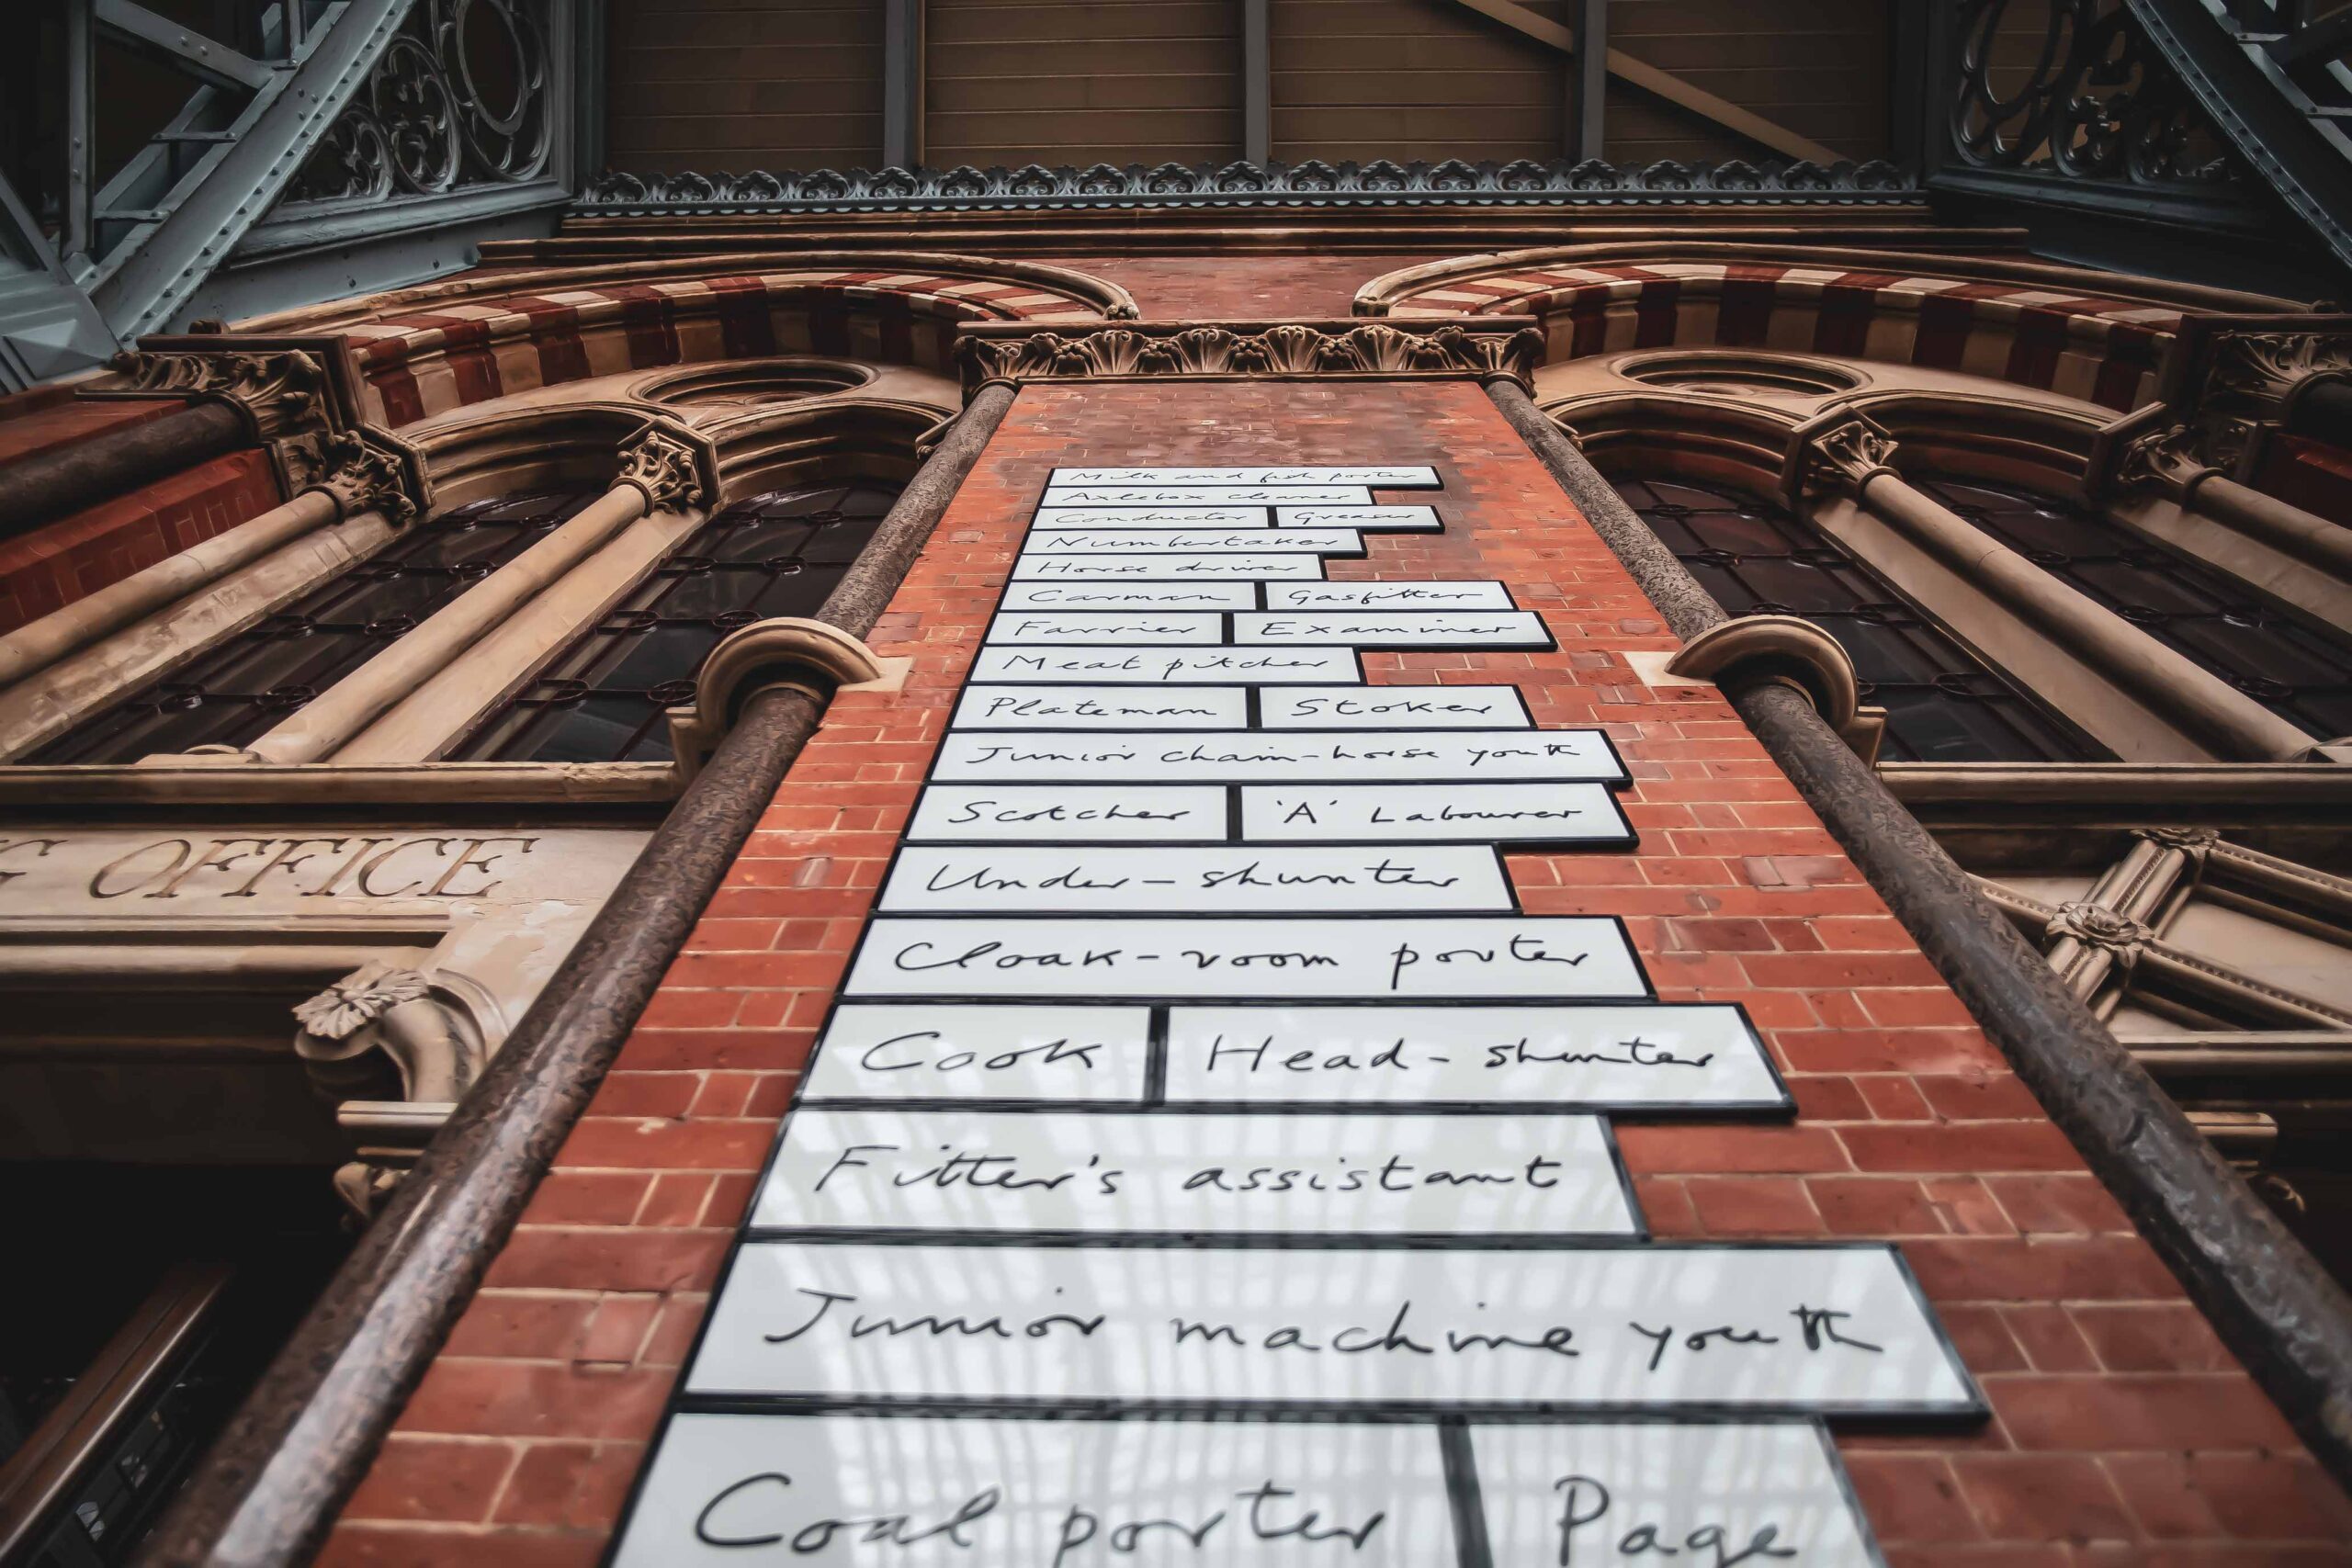 Milk and fish porter
Axlebox cleaner
Conductor Greaser
Numbertaker
Horse driver
Carman Gasfitter
Farrier Examiner
Meat pitcher
Plateman Stoker
Junior chain-horse youth
Scotcher 'A' Labourer
Under-shunter
G OFFICE
Cloak-room porter
Cook Head-shunter
Fitter's assistant
Junior machine youth
Coal porter Page